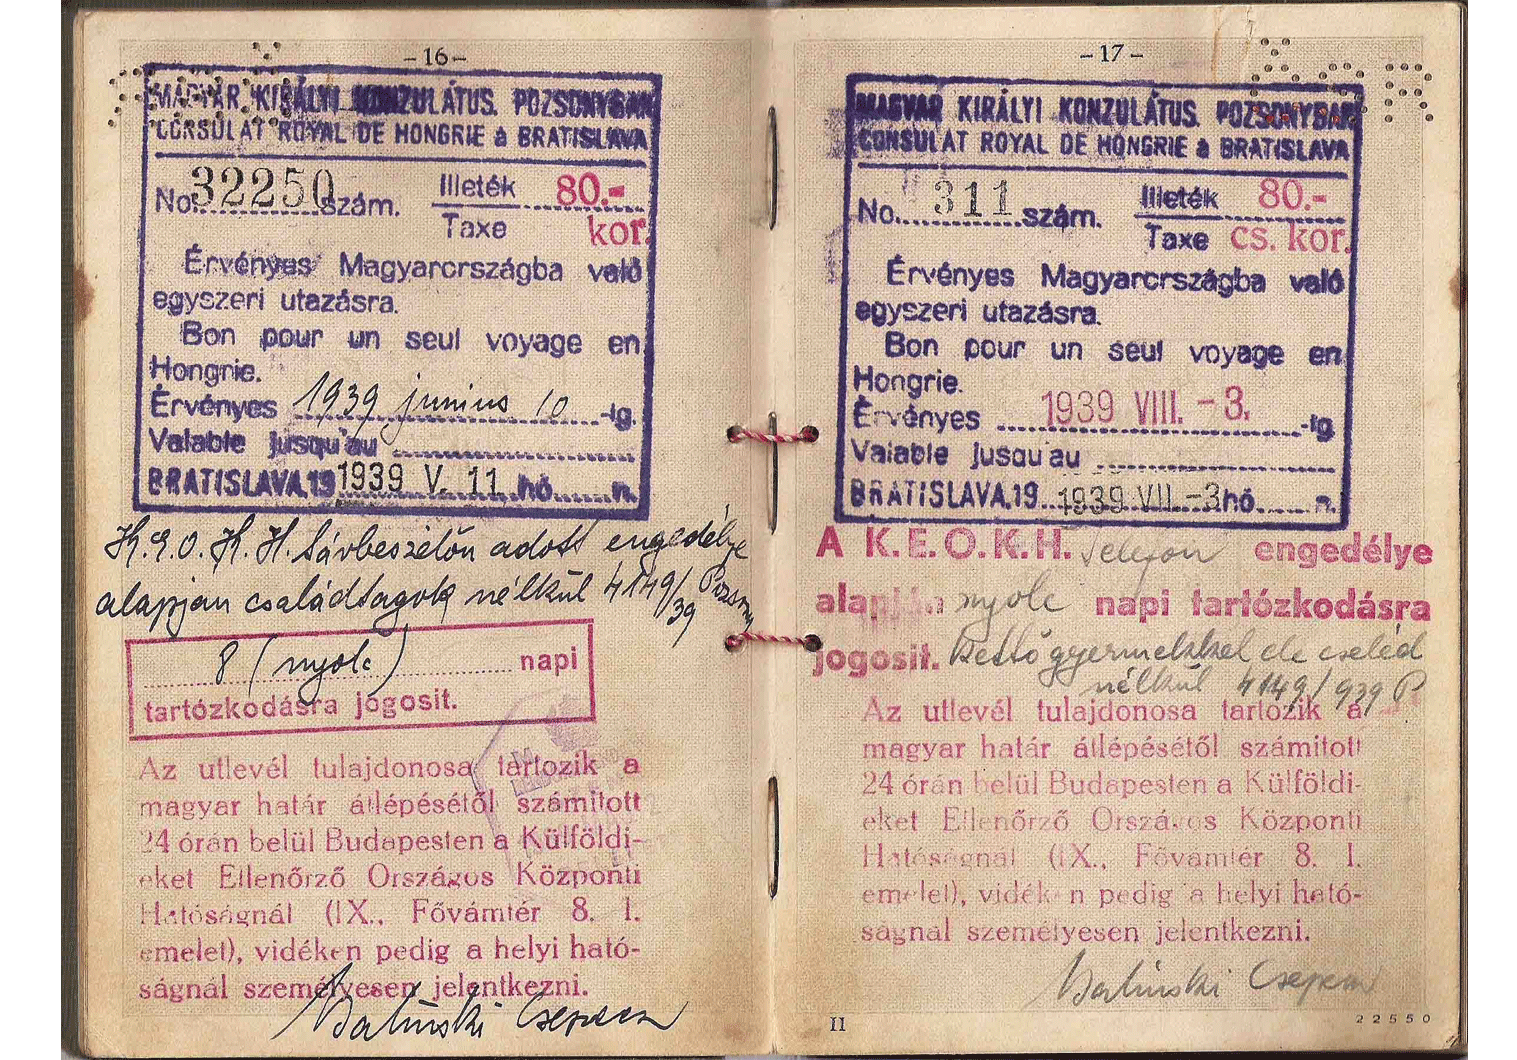 - 16 -
MAGYAR KIRÁLYI KONZULÁTUS. POZSONYBAN
CONSULAT ROYAL DE HONGRIE à BRATISLAVA
No. 32250 szám.
Illeték 80.-
Taxe kor.
Érvényes Magyarországba való
egyszeri utazásra.
Bon pour un seul voyage en
Hongrie.
Érvényes 1939 junius 10 -ig.
Valable jusqu'au
BRATISLAVA, 19 1939 V. 11 hó n.
K.E.O.K.H. távbeszélőn adott engedélye
alapján családtagok nélkül 4149/39 Pozsony
8 (nyolc) napi
tartózkodásra jogosit.
Az utlevél tulajdonosa tartozik a
magyar határ átlépésétől számitott
24 órán belül Budapesten a Külföldi-
eket Ellenőrző Országos Központi
Hatóságnál (IX., Fővámtér 8. I.
emelet), vidéken pedig a helyi ható-
ságnál személyesen jelentkezni.
- 17 -
MAGYAR KIRÁLYI KONZULÁTUS. POZSONYBAN
CONSULAT ROYAL DE HONGRIE à BRATISLAVA
No. 311 szám.
Illeték 80.-
Taxe cs. kor.
Érvényes Magyarországba való
egyszeri utazásra.
Bon pour un seul voyage en
Hongrie.
Érvényes 1939 VIII. - 3. -ig
Valable jusqu'au
BRATISLAVA, 19 1939 VII. - 3 hó n.
A K.E.O.K.H. telefon engedélye
alapján nyolc napi tartózkodásra
jogosit. Kettő gyermekkel de cseléd
nélkül 4149/939 P
Az utlevél tulajdonosa tartozik a
magyar határ átlépésétől számitott
24 órán belül Budapesten a Külföldi-
eket Ellenőrző Országos Központi
Hatóságnál (IX., Fővámtér 8. I.
emelet), vidéken pedig a helyi ható-
ságnál személyesen jelentkezni.
II
22550